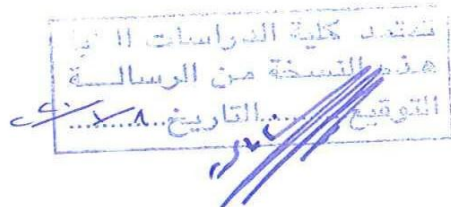 تعتمد كلية الدراسات
هذه النسخة من الرسالــة
التوقيع............التاريخ.........